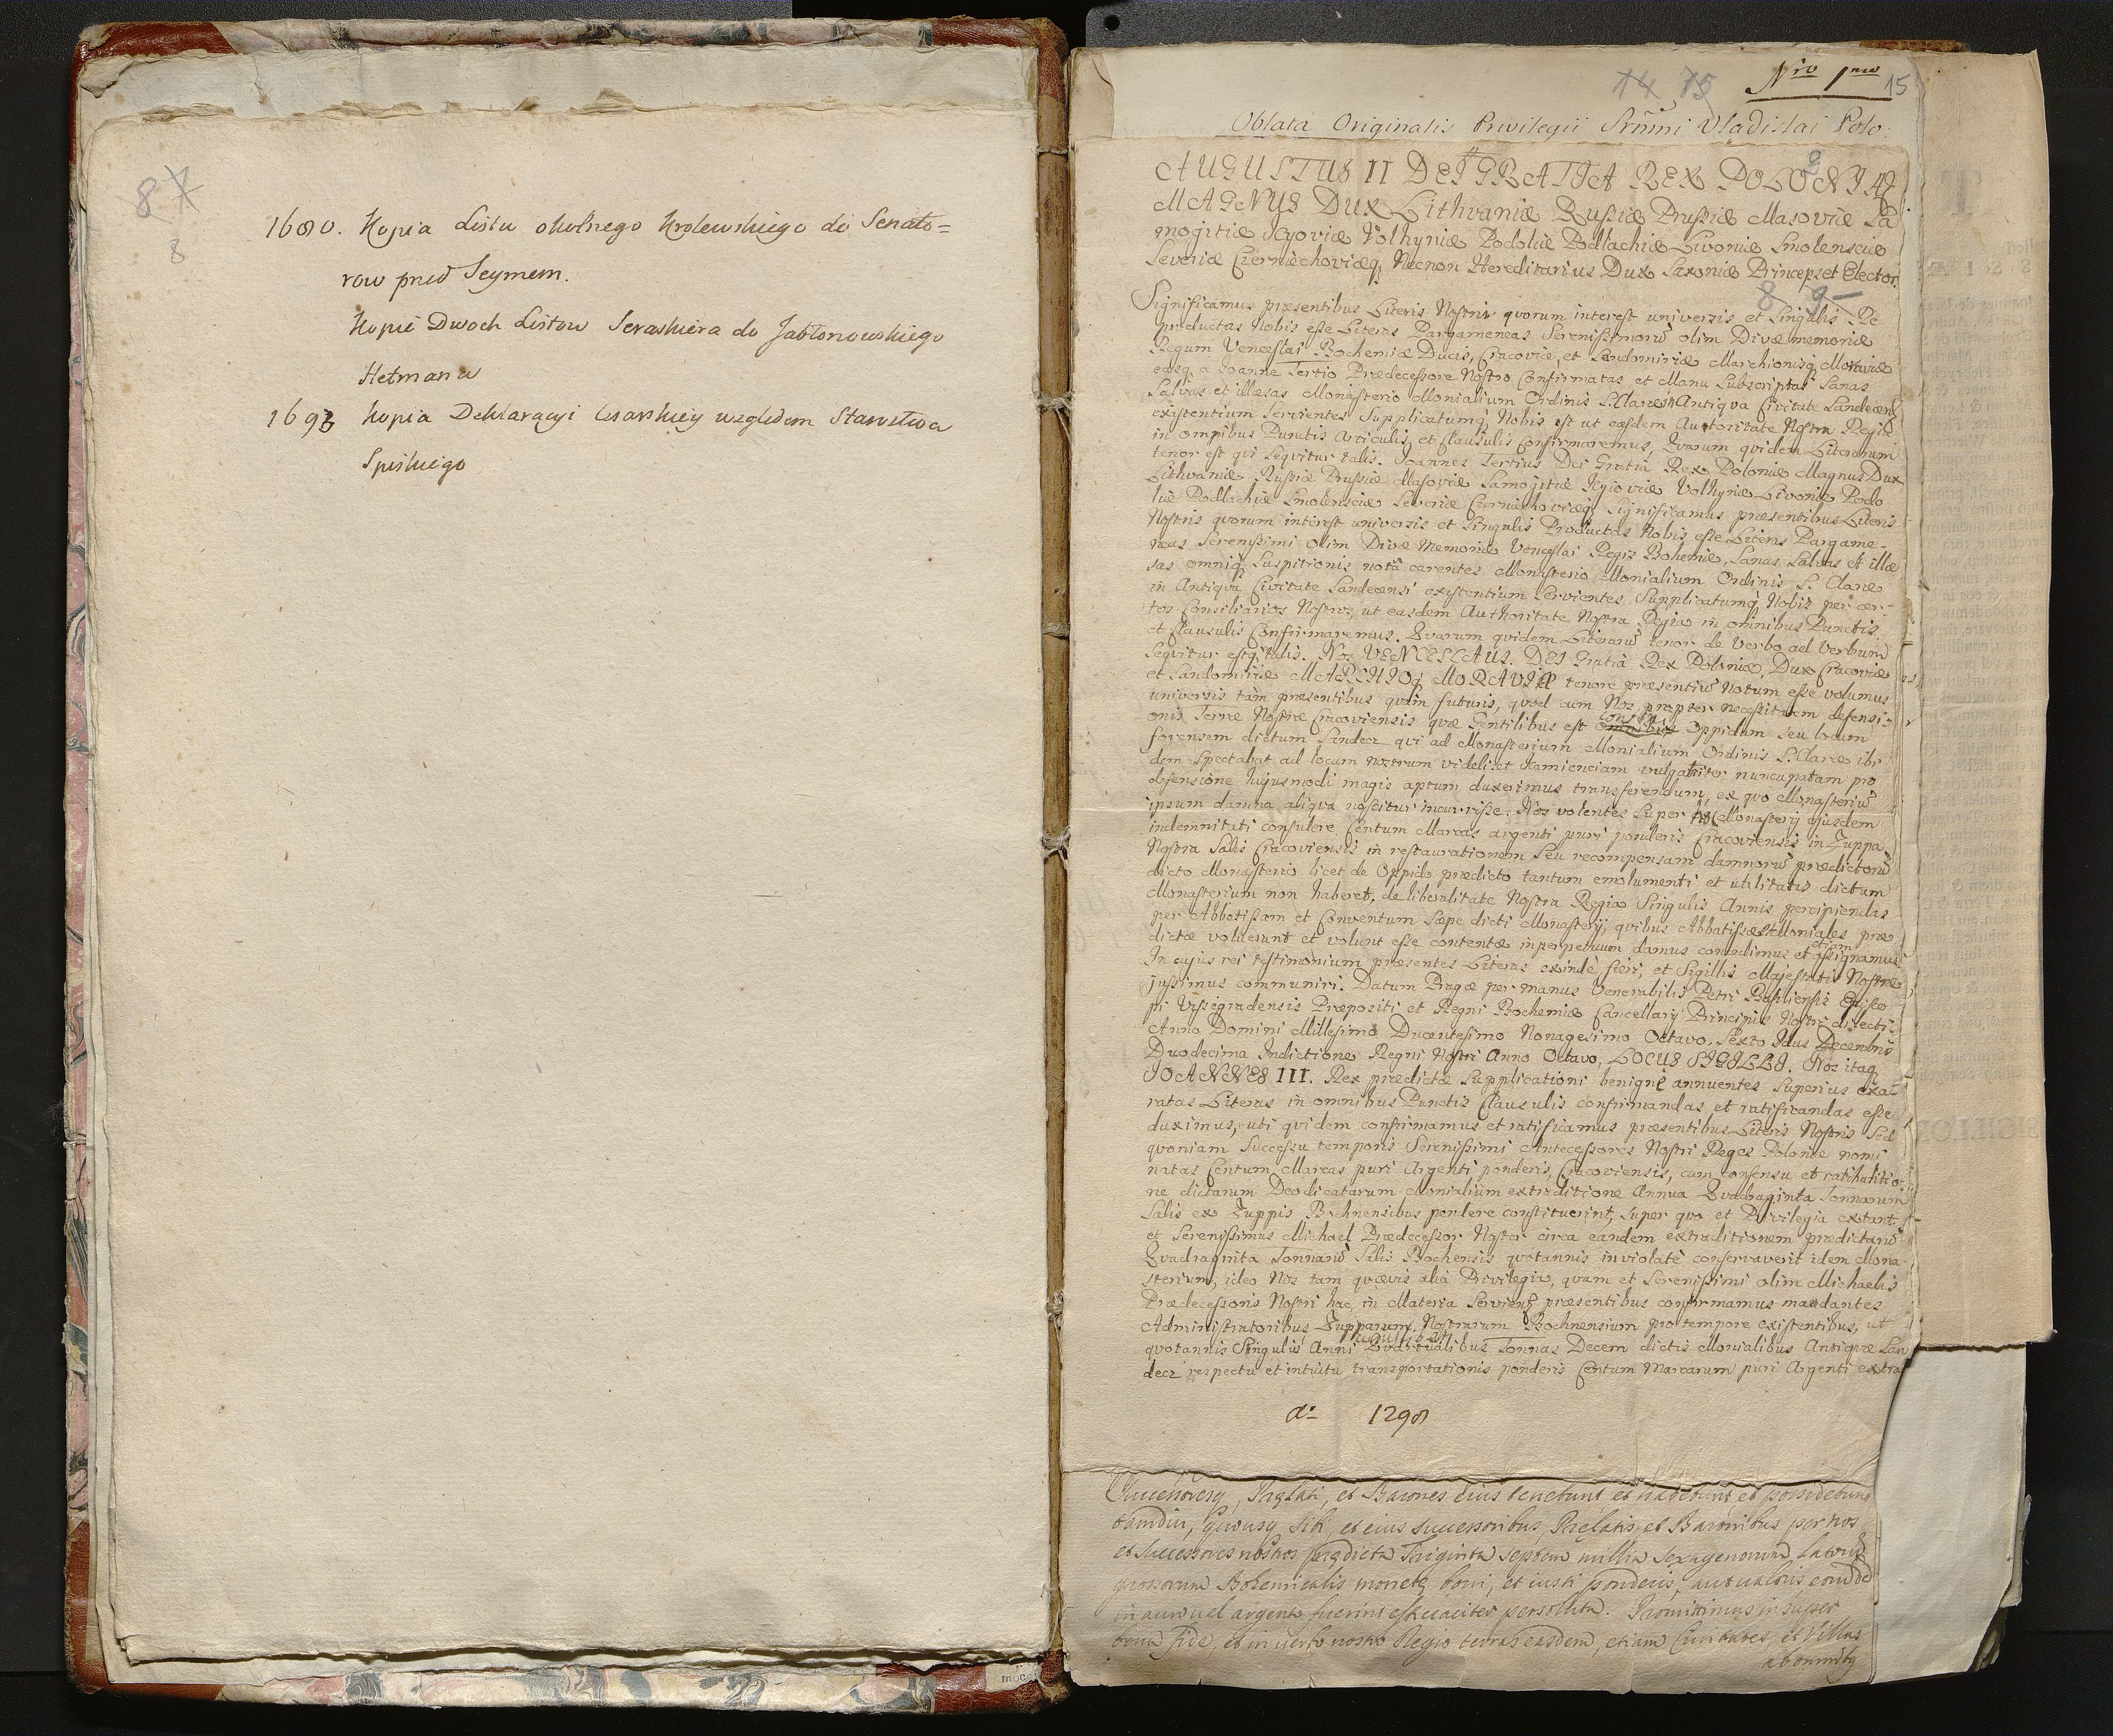 8 7
8
1680. Kopia Listu okolnego Krolewskiego do Senato=
row przed Seymem.
Kopie Dwoch Listow Seraskiera do Jabłonowskiego
Hetmana
1693 kopia Deklaracyi Cesarskiey względem Starostwa
Spiskiego
14 15 Nro 1mo 15
Oblata Originalis Privilegii Srmi Vladislai Polo
AUGUSTUS II DEI GRATIA REX POLONIÆ
MAGNUS DUX Lithvaniæ Rußiæ Prußiæ Masoviæ Sa
mogitiæ Kyoviæ Volhyniæ Podoliæ Podlachiæ Livoniæ Smolensciæ
Severiæ Czerniechoviæq, Necnon Hereditarius Dux Saxoniæ Princeps et Elector.
8 9
Significamus præsentibus Literis Nostris quorum interest universis et Singulis Re
productas Nobis eße Literas Pargameneas Serenißimorum olim Divæ memoriæ
Regum Venceslai Bochemiæ Ducis, Cracoviæ, et Sandomiriæ Marchionisq Moraviæ
easq, a Joanne Tertio Prædeceßore Nostro Confirmatas et Manu Subscriptas Sanas
Salvas et illæsas Monasterio Monialium Ordinis S. Claræ in Antiqva Civitate Sandecens
existentium Servientes Supplicatumq Nobis est ut easdem Authoritate Nostra Regia
in omnibus Punctis Articulis et Clausulis Confirmaremus, Qvarum qvidem Literarum
tenor est qvi Seqvitur talis. Joannes Tertius Dei Gratia Rex Poloniæ Magnus Dux
Lithvaniæ Rußiæ Prußiæ Masoviæ Samogitiæ Kyioviæ Volhyniæ Livoniæ Podo
liæ Podlachiæ Smolensciæ Severiæ Czerniechoviæq, Significamus præsentibus Literis
Nostris qvorum interest universis et Singulis Productas Nobis eße Literas Pargame-
neas Serenißimi olim Divæ Memoriæ Venceslai Regis Bohemiæ, Sanas Salvas et illæ
sas omniq, Suspitionis notâ carentes Monasterio Monialium Ordinis S. Claræ
in Antiqva Civitate Sandecensi existentium Servientes, Supplicatumq, Nobis per cer-
tos Consiliarios Nostros, ut easdem Authoritate Nostra Regia in omnibus Punctis
et Clausulis Confirmaremus. Qvarum qvidem Literarum tenor de Verbo ad Verbum
Seqvitur estq, talis. Nos VENCESLAUS. DEI Gratiâ Rex Poloniæ, Dux Cracoviæ
et Sandomiriæ MARCHIOq MORAVIÆ tenore præsentium Notum eße volumus
universis tàm præsentibus qvàm futuris, qvod cum Nos propter neceßitatem defensi-
onis Terræ Nostræ Cracoviensis qvæ Gentilibus est Oppidum seu locum
forensem dictum Sandecz qvi ad Monasterium Monialium Ordinis S. Claræ ibi
dem Spectabat ad locum nostrum videlicet Kamienciam vulgariter nuncupatam pro
defensione hujusmodi magis aptum duxerimus transferendum, ex qvo Monasterium
ipsum damna aliqva noscitur incurriße. Nos volentes Super hoc Monasterij ejusdem
indemnitati consulere Centum Marcas argenti puri ponderis Cracoviensis in Zuppa
Nostra Salis Cracoviensis in restaurationem Seu recompensam damnorum prædictorum
dicto Monasterio licet de Oppido prædicto tantum emolumenti et utilitatis dictum
Monasterium non haberet, de liberalitate Nostra Regia Singulis Annis percipiendas
per Abbatißam et Conventum Sæpe dicti Monasterij, qvibus Abbatißæ et Moniales præ
dictæ voluerunt et volunt eße contentæ in perpetuum damus concedimus et etiam aßignamus
In cujus rei testimonium præsentes Literas exinde fieri, et Sigillis Majestatis Nostræ
jußimus communiri. Datum Pragæ per manus Venerabilis Petri Basiliensis Episco
pi Vißegradensis Præpositi et Regni Bochemiæ Cancellarij Principis Nostri dilecti.
Anno Domini Millesimo Ducentesimo Nonagesimo Octavo, Sexto Idus Decembris
Duodecima Indictione Regni Nostri Anno Octavo, LOCUS SIGILLI. Nos itaq
JOANNES III. Rex prædictæ Supplicationi benignè annuentes Superius exa-
ratas Literas in omnibus Punctis Clausulis confirmandas et ratificandas eße
duximus, uti qvidem confirmamus et ratificamus præsentibus Literis Nostris Sed
qvoniam Succeßu temporis Serenißimi Anteceßores Nostri Reges Poloniæ nomi
natas Centum Marcas puri Argenti ponderis, Cracoviensis, cum consensu et ratihabitio
ne dictarum Deo dicatarum Monialium extraditione Annua Qvadraginta Tonnarum
Salis ex Zuppis Bochnensibus pendere constituerint, Super qvo et Privilegia extant
et Serenißimus Michael Prædeceßor Noster circa eandem extraditionem prædictarum
Qvadraginta Tonnarum Salis Bochensis qvotannis inviolatè conservaverit idem Mona
sterium, ideo Nos tam qvævis alia Privilegia, qvam et Serenißimi olim Michaelis
Prædeceßoris Nostri hac in Materia Servient, præsentibus confirmamus mandantes
Administratoribus Zupparum Nostrarum Bochnensium pro tempore existentibus, ut
qvotannis Singulis Anni Qvartualibus Tonnas Decem dictis Monialibus Antiqvæ San
decz respectu et intuitu transportationis ponderis Centum Marcarum puri Argenti extra
Ao 1298
Successoresq, Prælati, et Barones eius tenebunt et habebunt et possidebunt
tamdiu, sibi, et eius successoribus, Prælatis et Baronibus per nos
et Successores nostros prædicta Triginta septem millia sexagenorum latorum
grossorum Bohemicalis monetæ boni, et iusti ponderis, aut valoris eorunde
in auro uel argento fuerint efficaciter persoluta. Promittimus insuper
bona fide, et in verbo nostro Regio terras easdem, etiam Ciuitates, et Villas
ab omnibq